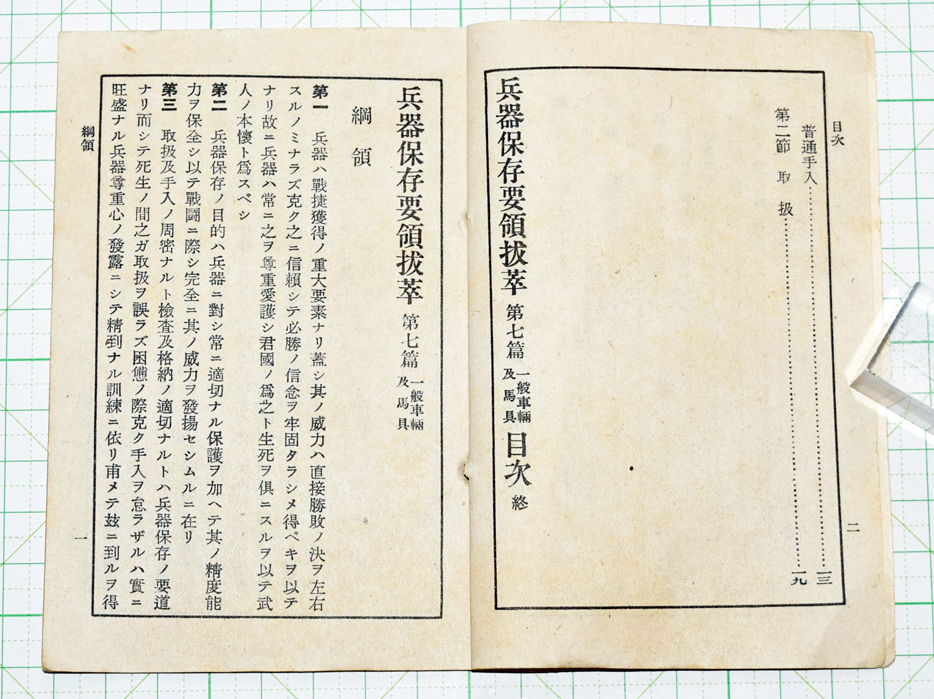 目次
二
普通手入‥‥‥‥‥‥‥‥一三
第二節 取扱‥‥‥‥‥‥‥‥一九
兵器保存要領抜萃 第七篇 一般車輛及馬具 目次 終
兵器保存要領抜萃 第七篇 一般車輛及馬具
綱領
第一 兵器ハ戰捷獲得ノ重大要素ナリ蓋シ其ノ威力ハ直接勝敗ノ決ヲ左右
スルノミナラズ克ク之ニ信賴シテ必勝ノ信念ヲ牢固タラシメ得ベキヲ以テ
ナリ故ニ兵器ハ常ニ之ヲ尊重愛護シ君國ノ爲之ト生死ヲ俱ニスルヲ以テ武
人ノ本懷ト爲スベシ
第二 兵器保存ノ目的ハ兵器ニ對シ常ニ適切ナル保護ヲ加ヘテ其ノ精度能
力ヲ保全シ以テ戰鬪ニ際シ完全ニ其ノ威力ヲ發揚セシムルニ在リ
第三 取扱及手入ノ周密ナルト檢査及格納ノ適切ナルトハ兵器保存ノ要道
ナリ而シテ死生ノ間之ガ取扱ヲ誤ラズ困憊ノ際克ク手入ヲ怠ラザルハ實ニ
旺盛ナル兵器尊重心ノ發露ニシテ精到ナル訓練ニ依リ甫メテ玆ニ到ルヲ得
綱領
一